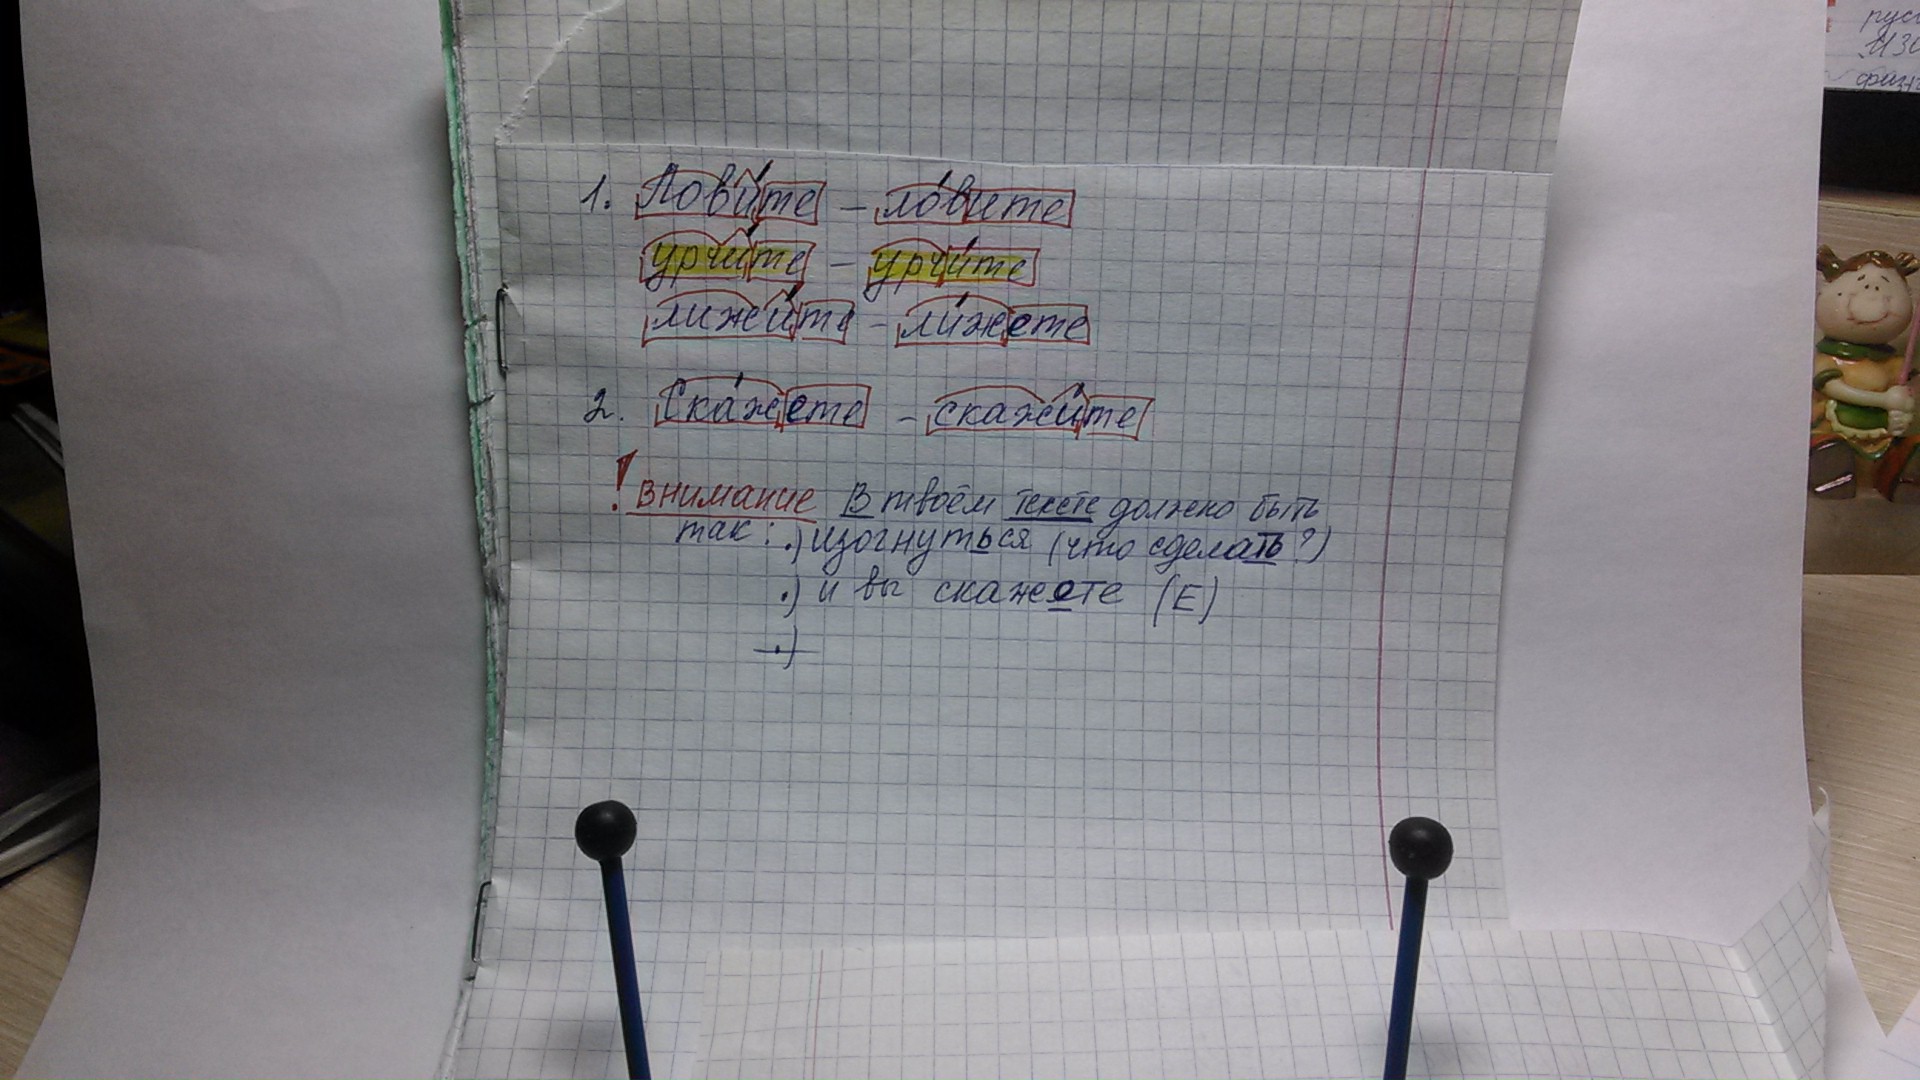 рус
ИЗО
физ
1. Лови́те – ло́вите
урчи́те – урчи́те
лижи́те – ли́жете
2. Ска́жете – скажи́те
! Внимание В твоём тексте должно быть
так: .) изогнуться (что сделать?)
.) и вы скажете (Е)
.)